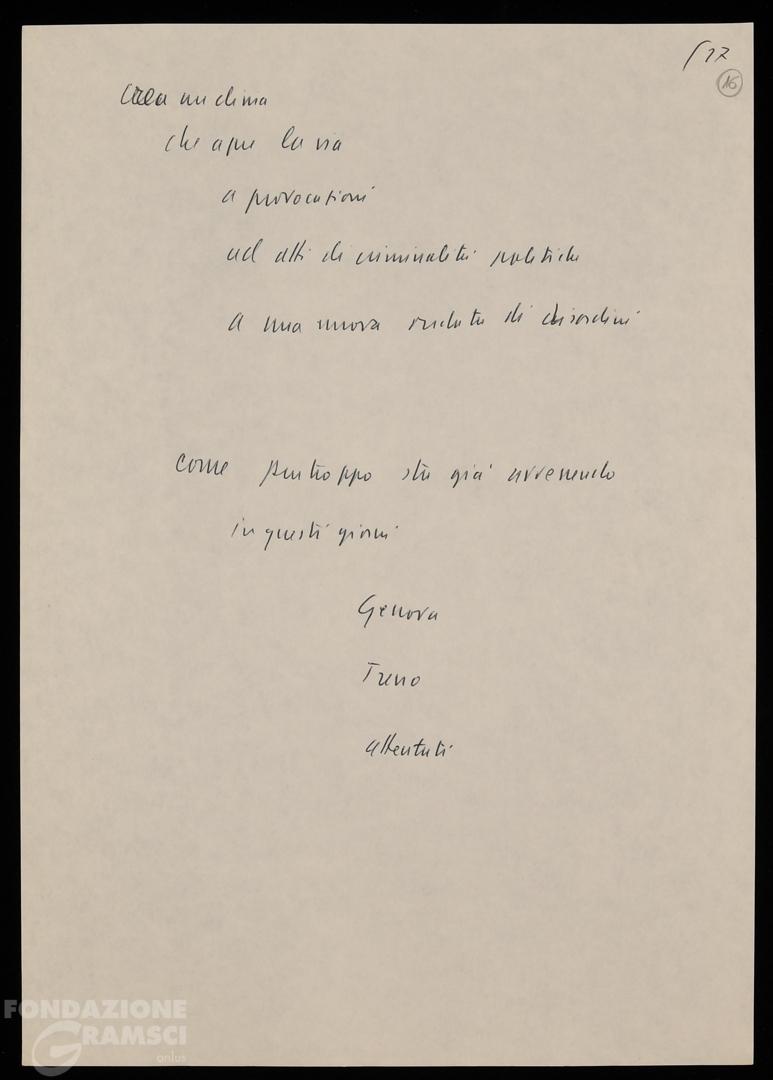 17
16
Crea un clima
che apre la via
a provocazioni
ad atti di criminalità politica
a una nuova ondata di disordini
come purtroppo sta già avvenendo
in questi giorni
Genova
Treno
attentati
FONDAZIONE
GRAMSCI
onlus